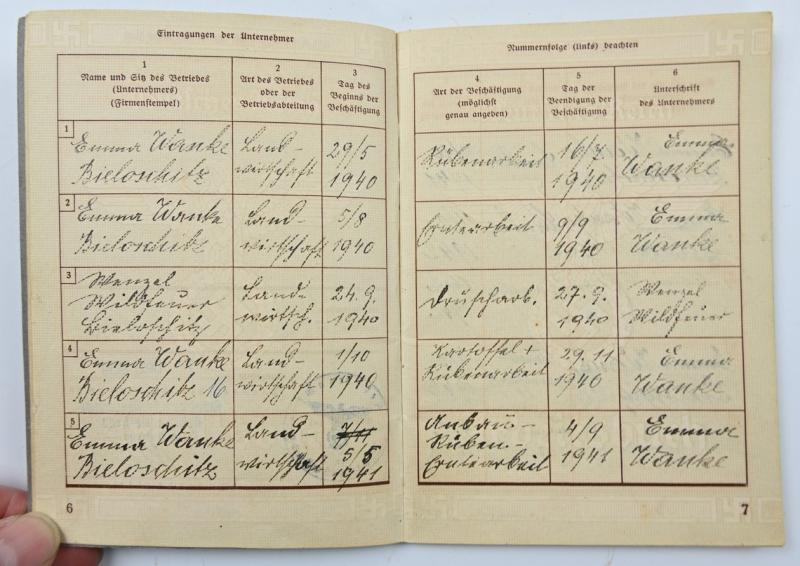 Eintragungen der Unternehmer
1
Name und Sitz des Betriebes
(Unternehmers)
(Firmenstempel)
2
Art des Betriebes
oder der
Betriebsabteilung
3
Tag des
Beginns der
Beschäftigung
1
Emma Wanke
Bieloschitz
Land-
wirtschaft
29/5
1940
2
Emma Wanke
Bieloschitz
Land-
wirtschaft
5/8
1940
3
Wenzel
Wildfeuer
Bieloschitz
Land-
wirtsch.
24.9.
1940
4
Emma Wanke
Bieloschitz 16
Land-
wirtschaft
1/10
1940.
5
Emma Wanke
Bieloschitz
Land-
wirtschaft
5/5
1941
6
Nummernfolge (links) beachten
4
Art der Beschäftigung
(möglichst
genau angeben)
5
Tag der
Beendigung der
Beschäftigung
6
Unterschrift
des Unternehmers
Rübenarbeit
16/7
1940
Emma
Wanke
Erntearbeit
9/9
1940
Emma
Wanke
Druscharb.
27.9.
1940
Wenzel
Wildfeuer
Kartoffel +
Rübenarbeit
29.11
1940
Emma
Wanke
Anbau-
Rüben-
Erntearbeit
4/9
1941
Emma
Wanke
7